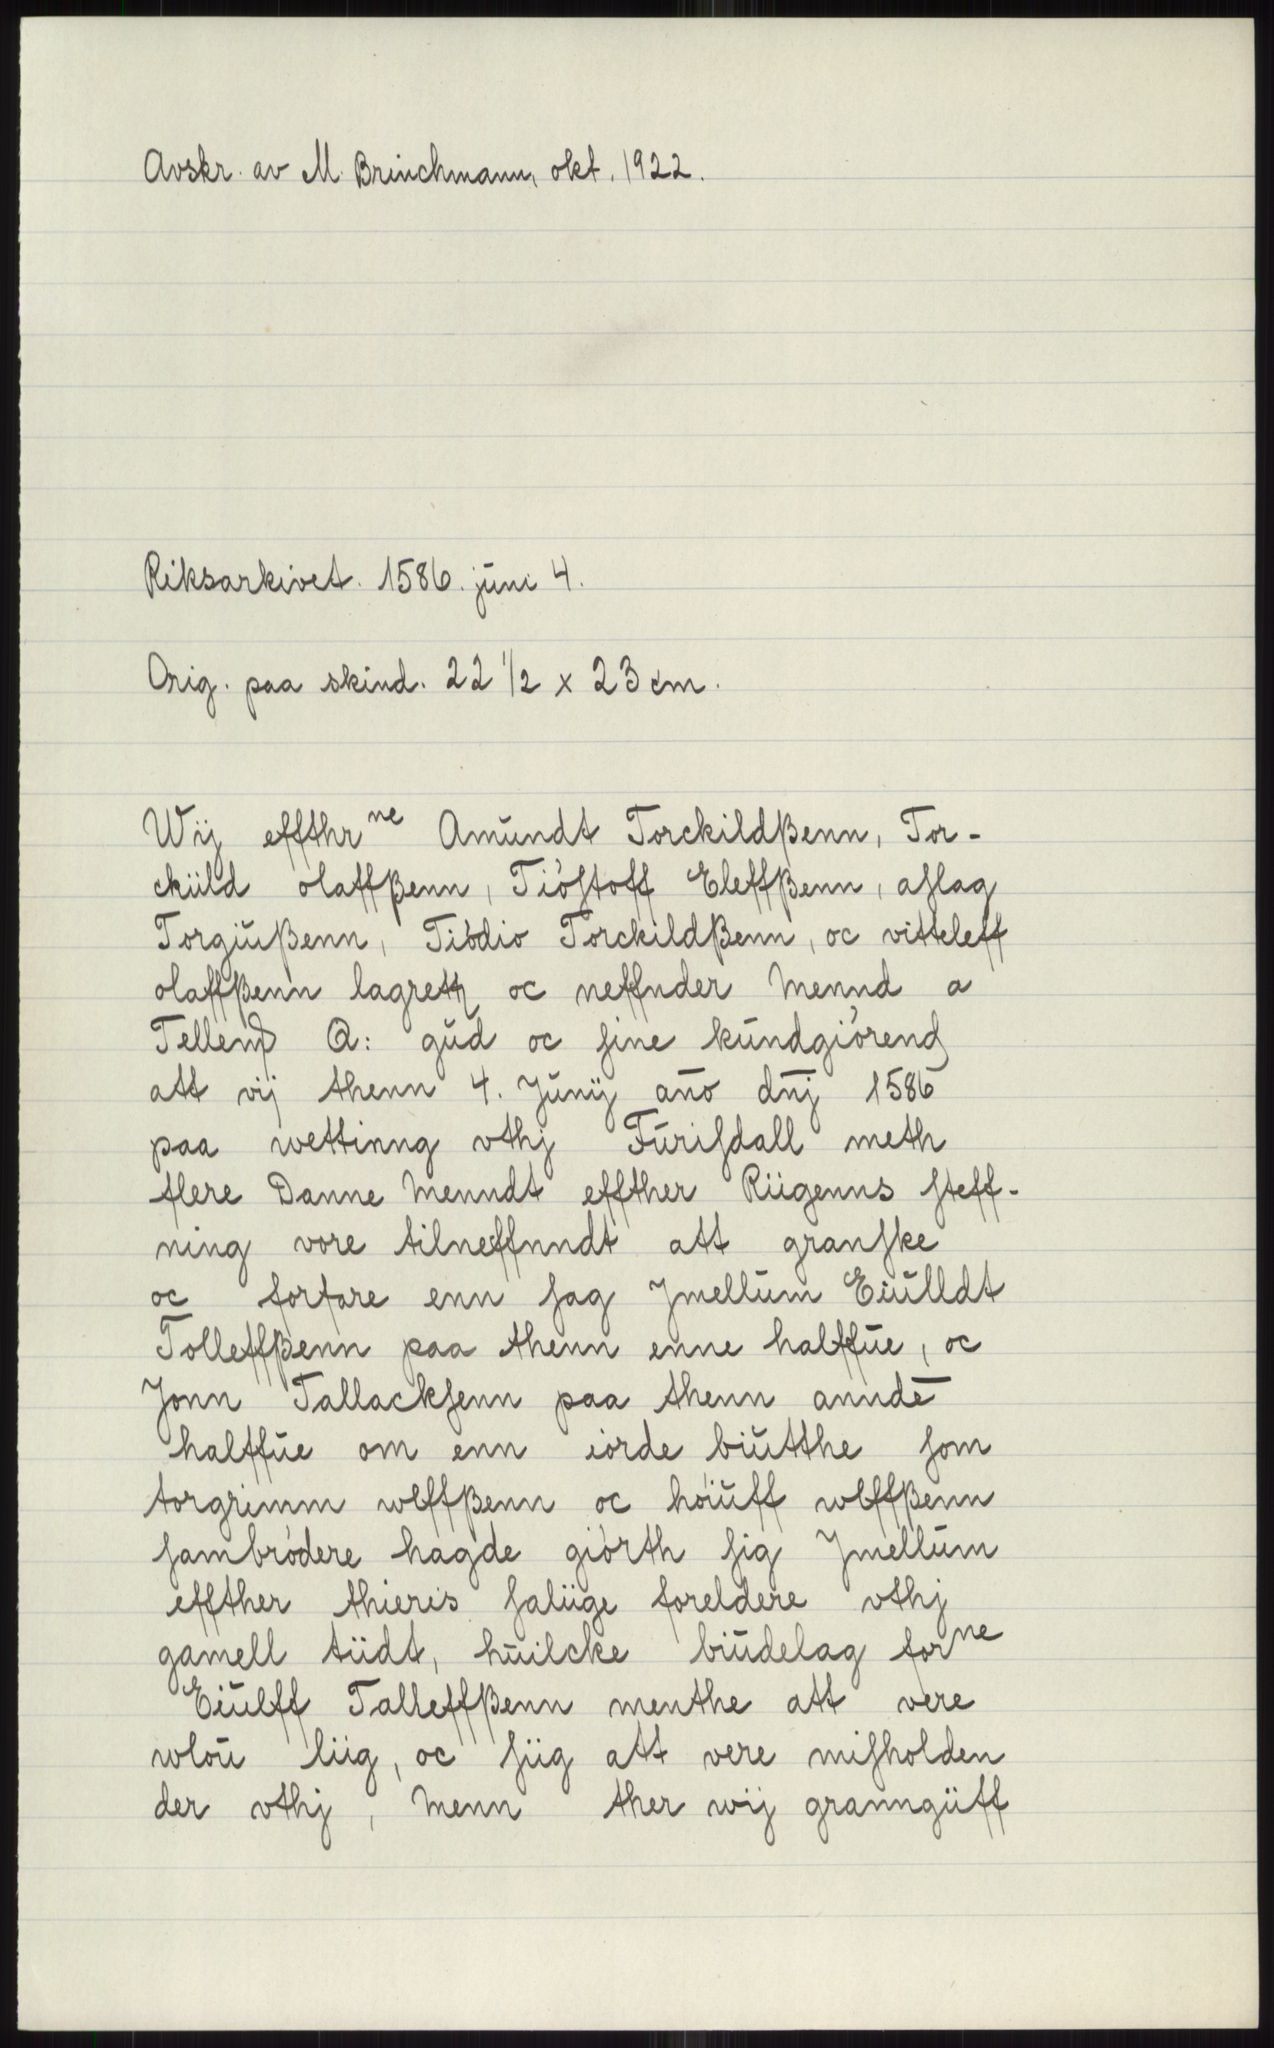 Avskr. av M. Brinchmann, okt. 1922.
Riksarkivet. 1586. juni 4.
Orig. paa skind. 22 1/2 x 23 cm.
Wij effthrne Amŭndt Torckildßenn, Tor-
ckiild olaffßenn, Tióstoff Eleffßenn, aslag
Torgiŭßenn, Tiódio Torckildßenn, oc vitteleff
olaffßenn lagrett oc neffnder Mennd a
Tellem Q: gŭd oc sine kŭndgiórend
att vij thenn 4. Jŭnij an̄o dn̄j 1586
paa wettinng vthj Fŭrisdall meth
flere Danne Menndt effther Riigenns steff-
ning vore tilneffnndt att granske
oc forfare enn sag Jmellŭm Eiŭlldt
Tolleffßenn paa thenn enne halffŭe, oc
Jonn Tallacksenn paa thenn annde̅
halffŭe om enn iórde biŭtthe som
torgrimm wlffßenn oc hóiŭff wlffßenn
sambródere hagde giórth sig Jmellŭm
effther thieris saliige foreldere vthj
gamell tiidt, hŭilcke biŭdelag forne
Eiŭlff Talleffßenn menthe att vere
wloŭ liig, oc siig att vere misholden
der vthj, Menn ther wij granngiiff